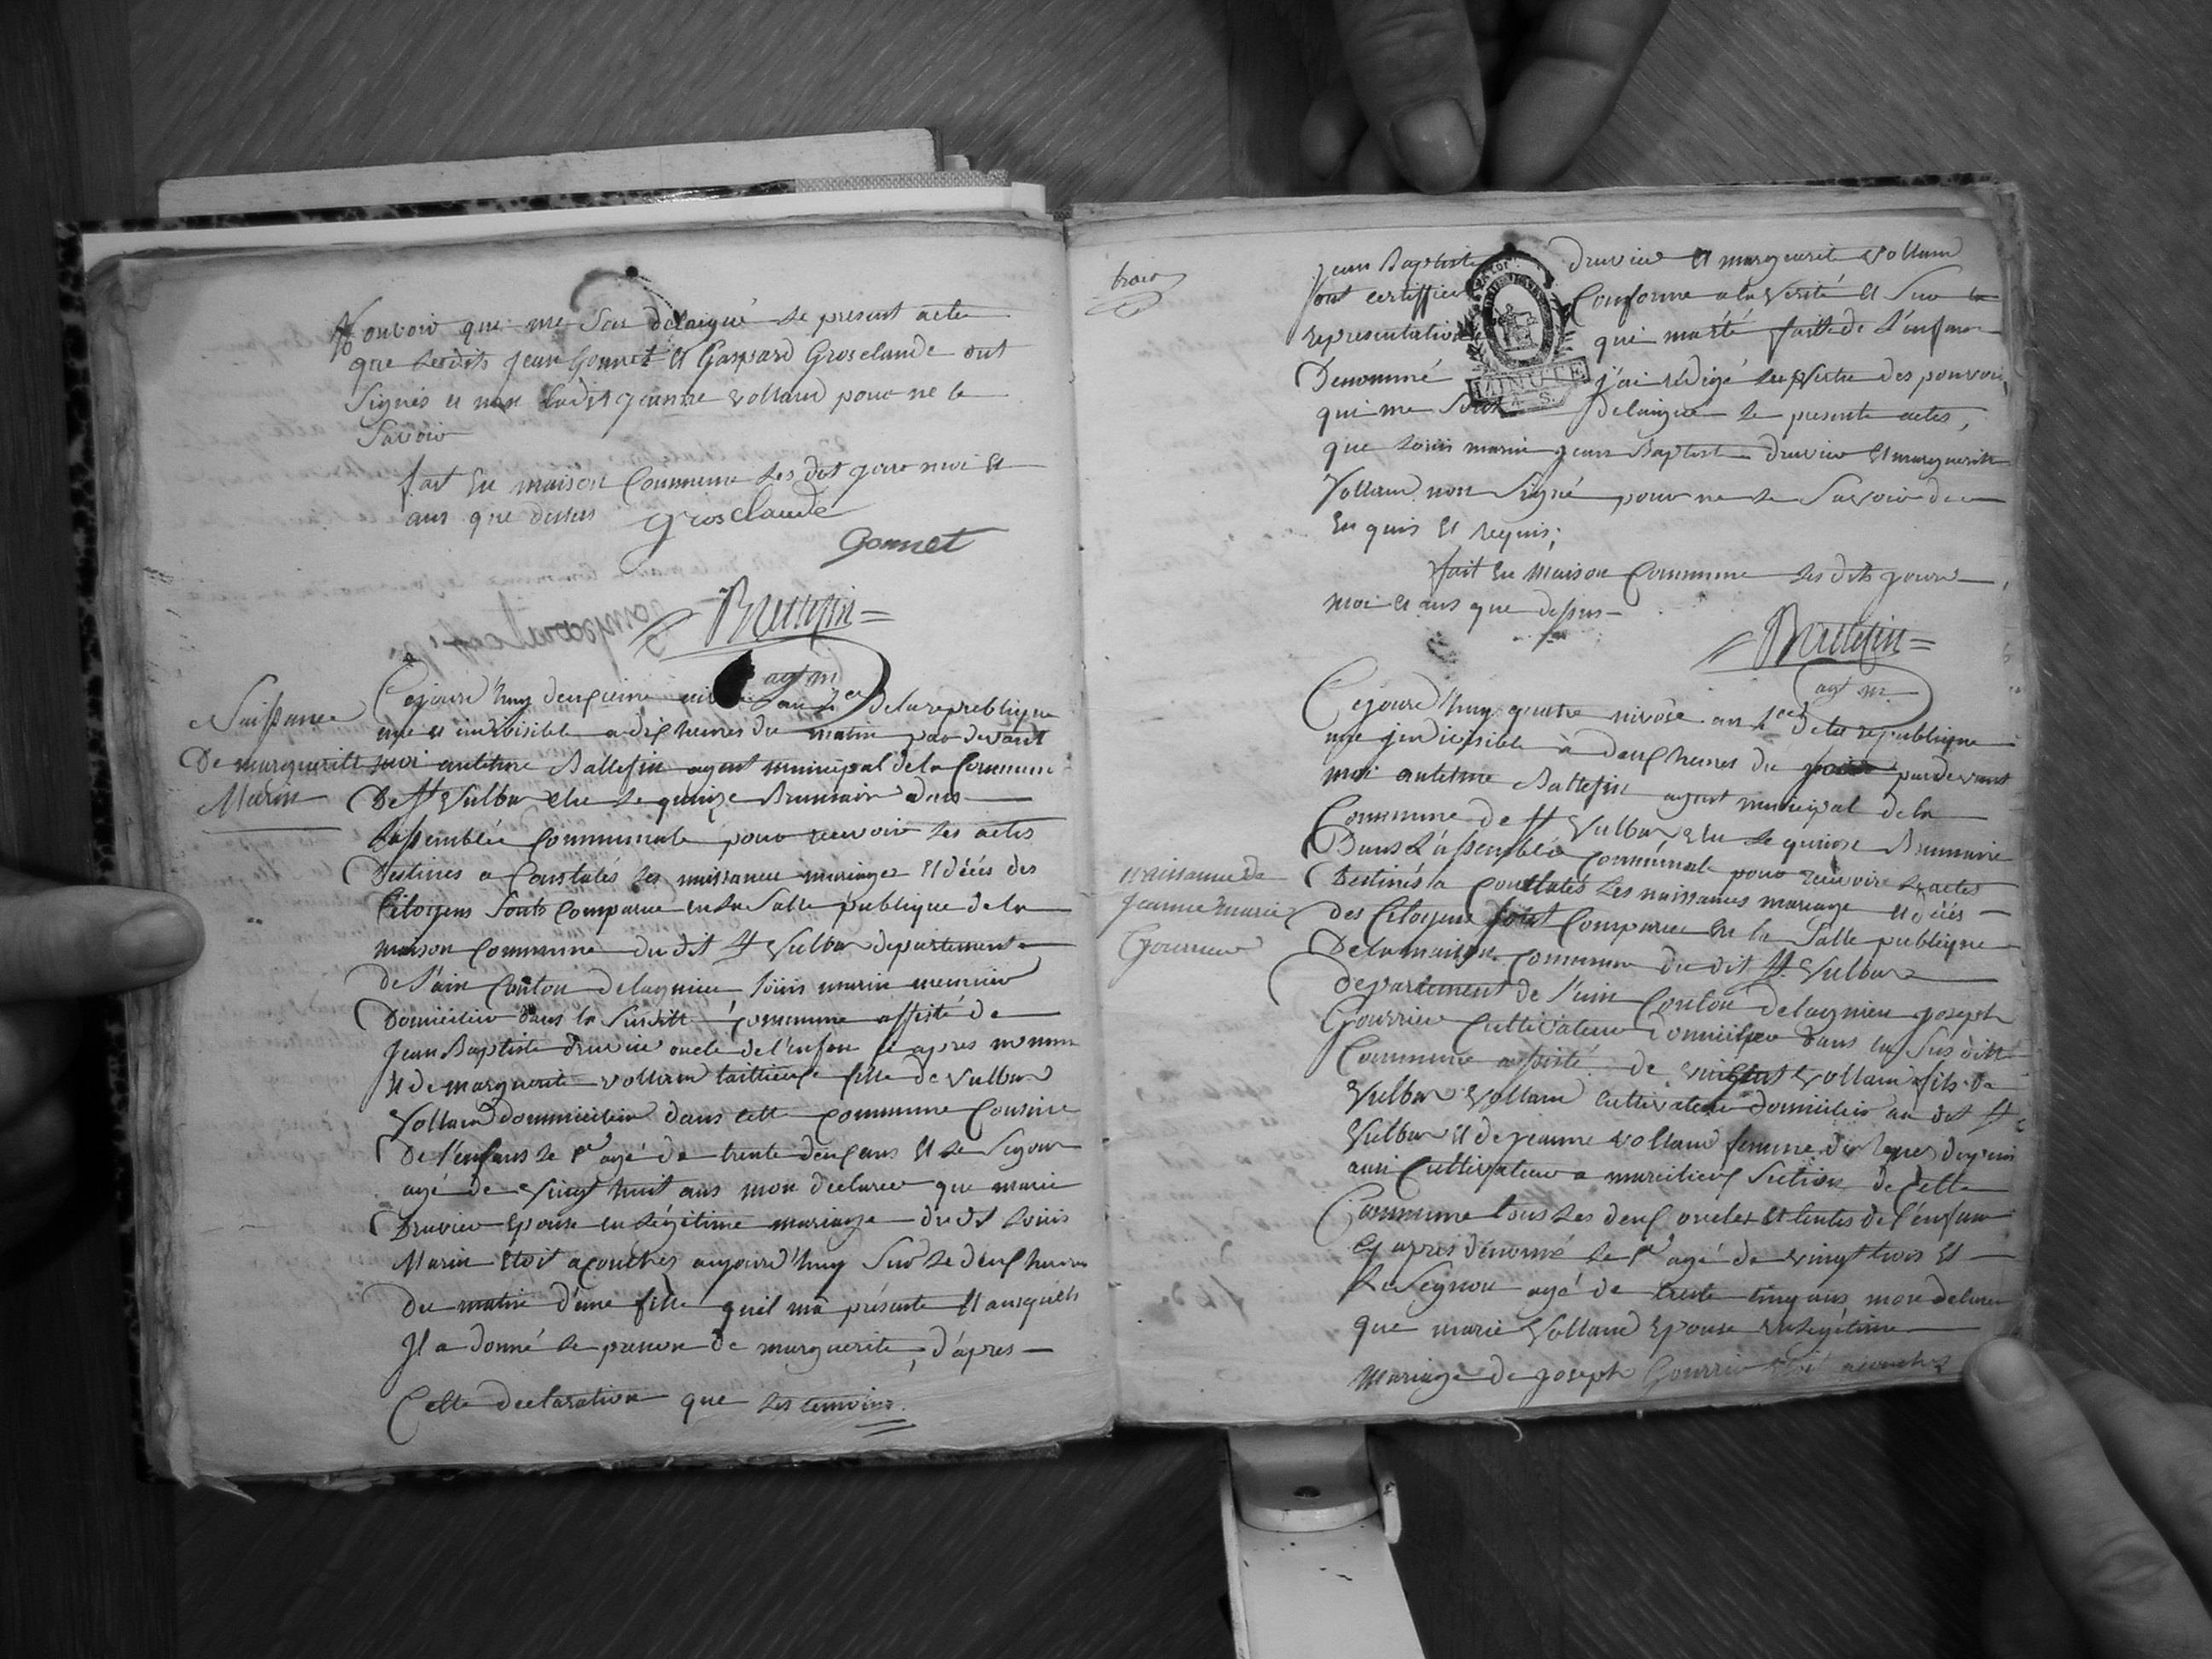 pouvoir que me son délaigué le present acte
que lesdits jean Gonnet et Gaspard Grosclaude ont
Signés et non ladit jeanne volland pour ne le
Savoir
fait En maison Commune les dit jour moi et
ans que dessus Grosclaude
Gonnet
Ballefin
agt m
Naissance
De marguerite
Marin
Cejourd'huy deuxieme an de la republique
une et indivisible a dix heures du matin par devant
moi antelme Ballefin agent municipal de la Commune
De St Vulbas elu le quinze Brumaire dans
Lassemblée Communale pour recevoir les actes
Destinés a Constatés les naissance mariages et décés des
Citoyens Sonts Comparue en la Salle publique de la
maison Commune du dit St Vulbas departement
de l'ain Canton de lagnieu, louis marin
Domicilié dans la Susditte Commune assisté de
Jean Baptiste druvieu oncle de l'enfan ci apres nommé
Et de marguerite volland tailleuse fille de Vulbas
Volland dommicilié dans cette commune Cousine
De l'enfans le 1er agé de trente deux ans et le Segon
agé de Vingt huit ans mon declaree que marie
Druvieu Epouse en légitime mariage du dit louis
Marin Etoit acouchés aujourd'huy Sur le deux heures
Du matin d'une fille qu'il ma présenté et ausquels
Il a donné le prenom de marguerite, d'après
Cette declaration que les temoins
jean Baptiste druvieu et marguerite volland
ont certiffiée Conforme a la verité et Sur la
representation qui ma été faitte de l'enfans
Denommé j'ai rédigé En Vertu des pouvoir
qui me Sont delaigué le presente actes,
que louis marin jean Baptiste druvieu et marguerite
Volland non Signé pour ne le Savoir de ce
En quis et requis;
fait En Maison Commune les dits jour
moi et ans que dessus
MINUTE
Ballefin
agt m
naissance de
Jeanne marie
Gourrieu
Cejourd'huy quatre nivôse an de la republique
une indivisible à deux heures du par devant
moi antelme Ballefin agent municipal de la
Commune de St Vulbas elu le quinze Brumaire
Dans L'assemblée Communale pour recevoire les actes
Destinés a Constatés les naissances mariage et décés
des Citoyens sont Comparue En la Salle publique
De la maison Commune du dit St Vulbas
Departement de l'ain Canton de lagnieu joseph
Gourrieu Cultivateur Domicilier dans la Sus ditte
Commune assisté de volland fils de
Vulbas Volland Cultivateur domicilié au dit St
Vulbas et de jeanne volland femme
aussi Cultivateur a marcilieux Section de cette
Commune tous les deux oncles et tentes de l'enfans
cy apres dénomé le 1er agé de vingt trois et
le Segnon agé de trente cinq ans mon declaree
que marie Volland Epouse en légitime
Mariage de joseph Gourrieu